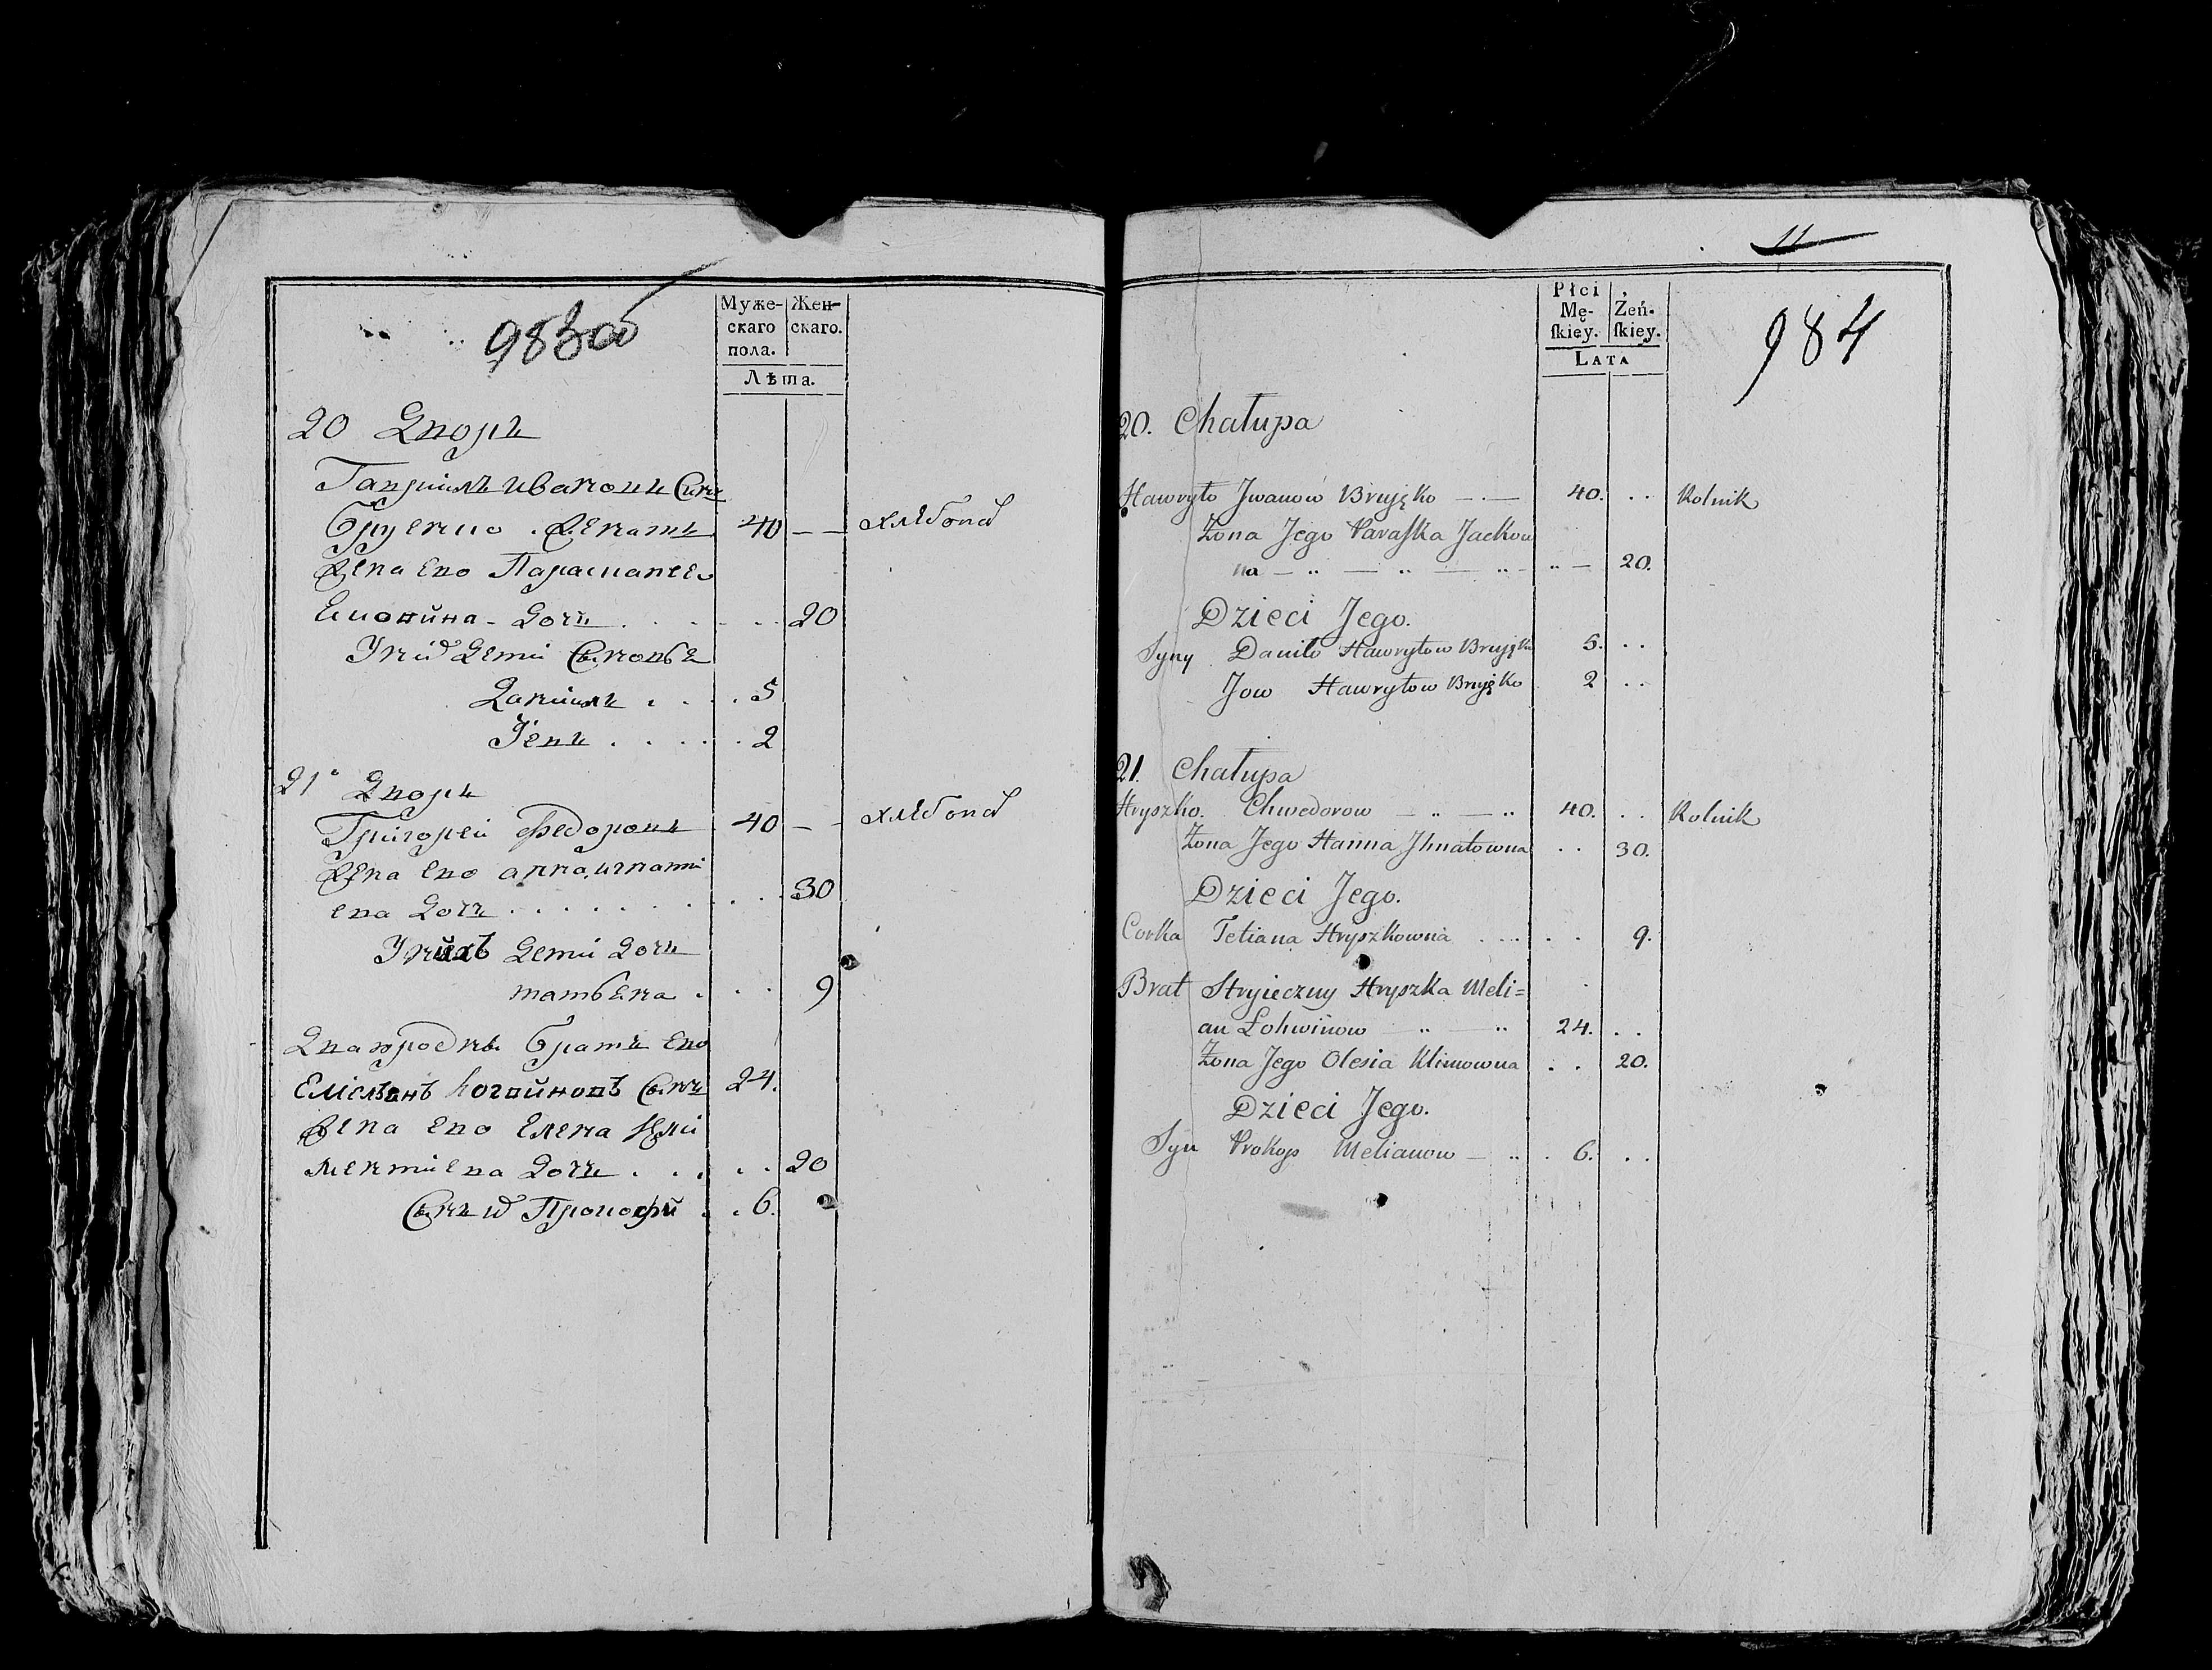 983об
Муже-
скаго
пола.
Жен-
скаго.
Лѣта.
20 Дворъ
Гаврилъ Ивановъ Сынъ
Бруенко . Женатъ 40 — — хлѣбопа
Жена Ево Парасшапсев
20
У ниⷯ Дети Сыновья
Данилъ . . . . 5
Іевъ . . . . . 2
21 Дворъ
Григорей Федоровъ 40 — — хлѣбопа
Жена Ево анна, игнатиі
ева Дочь . . . . . . . . . . 30
У нихъ Дети Дочь
татьяна . . . 9
Дваюродны Братъ Ево
Еміельянъ Логвиновъ Сынъ 24.
Жена Ево Елена Кли
ментиева Дочь . . . . . 20
Сынъ Прокофй . . 6.
11
984
Płci
Mę-
ſkiey.
Żeń-
ſkiey.
Lata
20. Chałupa
Hawryło Jwanow Bruyęko — . — 40. . . Rolnik
Żona Jego Paraſka Jackow
na — .. — .. — .. - .. — 20.
Dzieci Jego.
Syny Daniło Hawryłow Bruyęko 5. . .
Jow Hawryłow Bruyęko 2 . .
21. Chałupa
Hryszko. Chwedorow — .. — .. 40. . . Rolnik
Żona Jego Hanna Jhnatowna . . 30.
Dzieci Jego.
Corka Tetiana Hryszkowna . ... . . 9.
Brat Stryieczny Hryszka Meli=
an Łohwinow .. — .. 24. . .
Żona Jego Olesia Klimowna . . 20.
Dzieci Jego.
Syn Prokop Melianow — .. . 6. . .